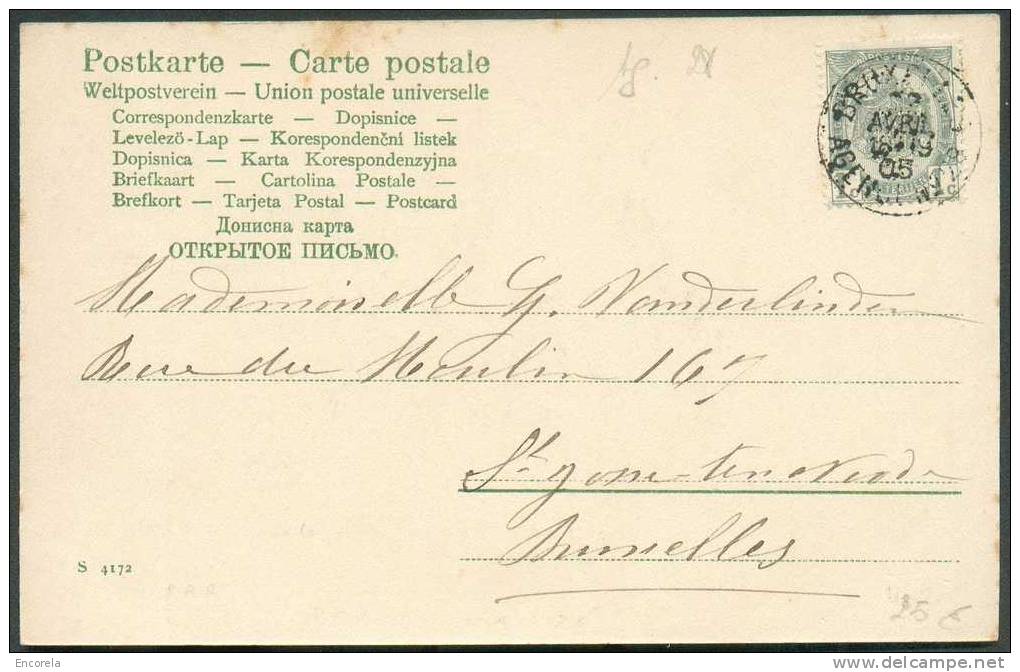 Postkarte — Carte postale
Weltpostverein — Union postale universelle
Correspondenzkarte — Dopisnice —
Levelező-Lap — Korespondenční listek
Dopisnica — Karta Korespondenzyjna
Briefkaart — Cartolina Postale —
Brefkort — Tarjeta Postal — Postcard
Дописна карта
ОТКРЫТОЕ ПИСЬМО.
AVRIL
05
Mademoiselle G. Vanderlinden
Rue du Moulin 167
St. Josse-ten-Noode
Bruxelles
S 4172
25 €
Encorela
www.delcampe.net